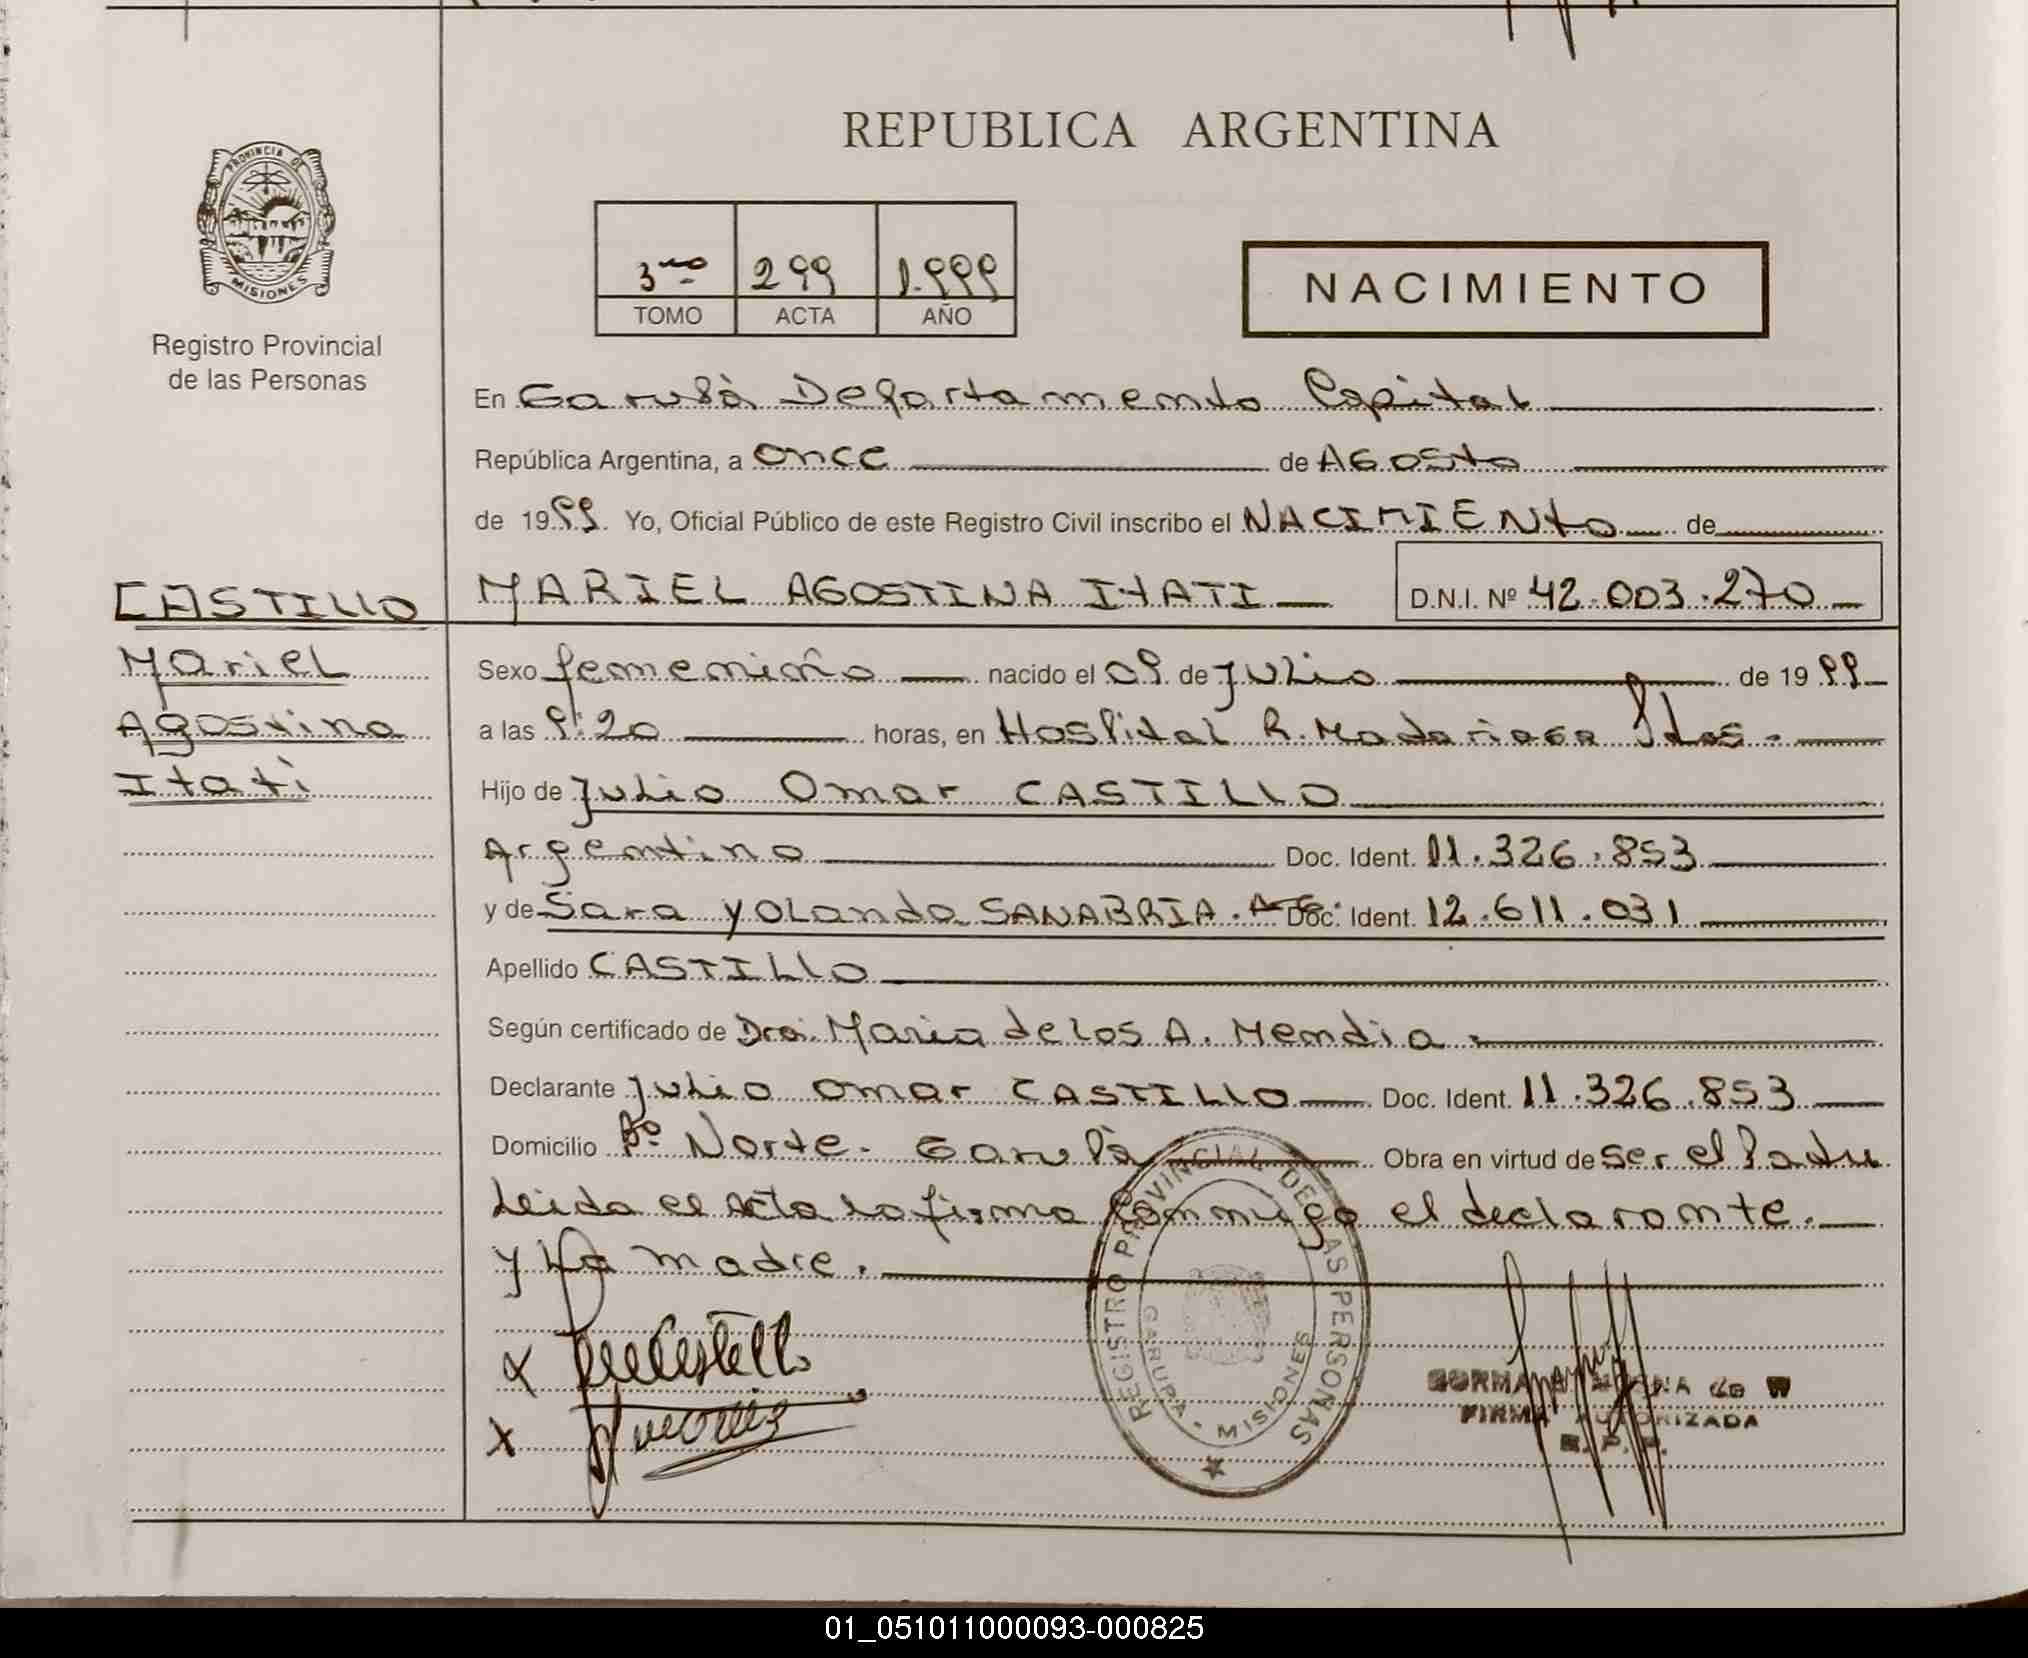 REPUBLICA ARGENTINA
PROVINCIA DE
MISIONES
Registro Provincial
de las Personas
3ro 299 1.999
TOMO ACTA AÑO
NACIMIENTO
En Garupà Departamento Capital
República Argentina, a once de Agosto
de 1999. Yo, Oficial Público de este Registro Civil inscribo el NACIMIENto de
CASTILLO
MARIEL AGOSTINA ITATI D.N.I. Nº 42.003.270
Mariel
Agostina
Itatì
Sexo femenino nacido el 09 de Julio de 1999
a las 9:20 horas, en Hospital R. Madariaga Pdas.
Hijo de Julio Omar CASTILLO
Argentino Doc. Ident. 11.326.853
y de Sara Yolanda SANABRIA. Doc. Ident. 12.611.031
Apellido CASTILLO
Según certificado de Dra. Maria de los A. Mendia.
Declarante Julio Omar CASTILLO Doc. Ident. 11.326.853
Domicilio Bº Norte. Garupà Obra en virtud de ser el Padre
Leida el Acta la firma conmigo el declarante.
y La madre.
REGISTRO PROVINCIAL DE LAS PERSONAS
GARUPA - MISIONES
x
x
FIRMA AUTORIZADA
R. P. P.
01_051011000093-000825